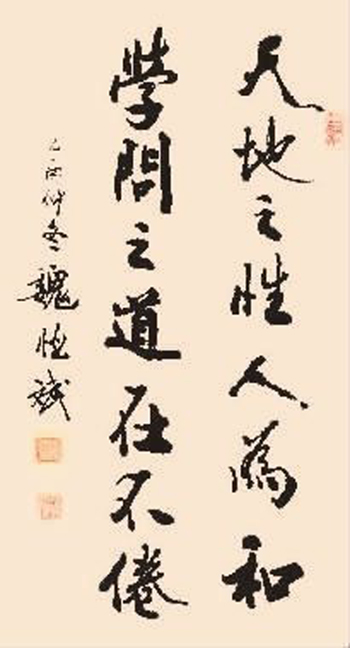 天地之性人為和
學問之道在不倦
乙酉仲冬魏恒斌